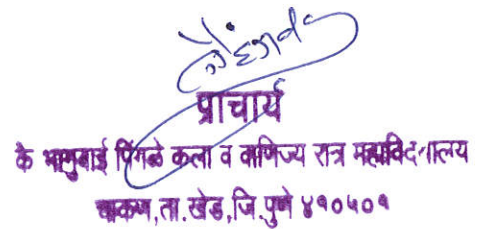 प्राचार्य
के भागुबाई पिंगळे कला व वाणिज्य रात्र महाविद्यालय
चाकण, ता. खेड, जि. पुणे ४१०५०१